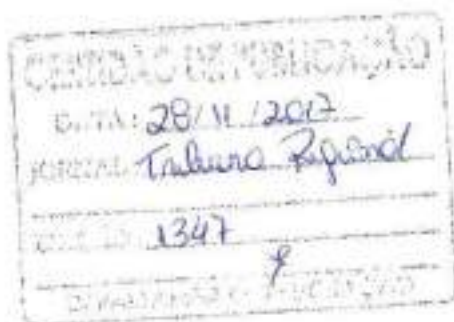 CERTIDÃO DE PUBLICAÇÃO
DATA: 28/11/2017
JORNAL: Tribuna Regional
EDIÇÃO: 1347